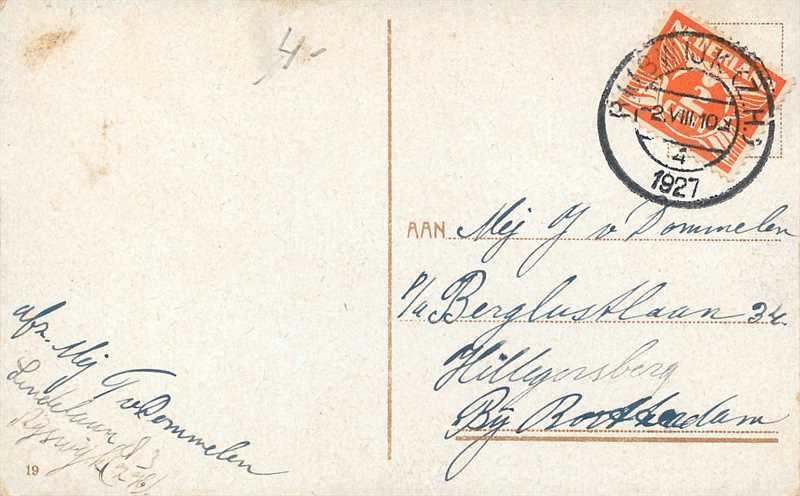 4-
NEDERLAND
2
CENT
RIJSWIJK (Z.H.)
2.VIII.10
4
1927
AAN Mej J v Dommelen
P/a Berglustlaan
Hillegersberg
Bij Rotterdam
afz. Mej T v Dommelen
Lindelaan 83
Ryswijk (ZH)
19